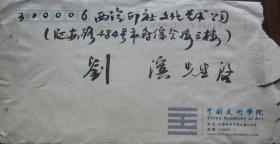 310006 西泠印社文化艺术公司
(延安路484号市府综合楼三楼)
劉 滨 先生 启
中国美术学院
China Academy of Art